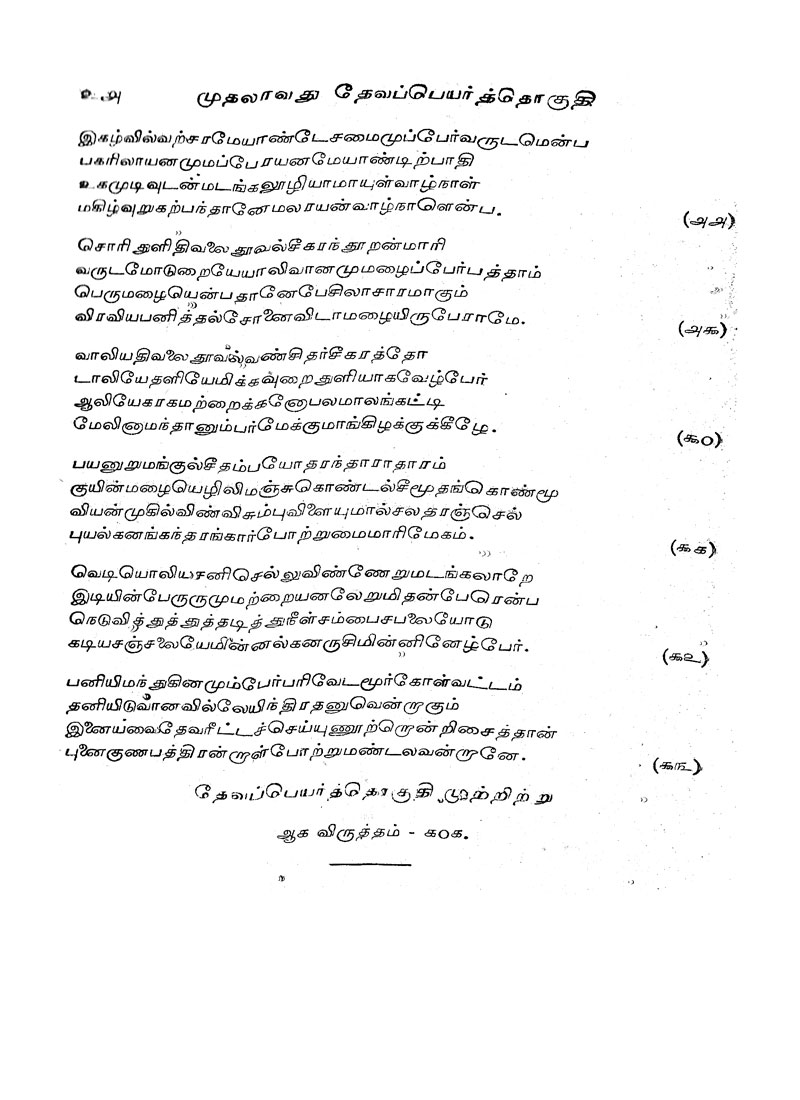 ௨௮ முதலாவது தேவப்பெயர்த்தொகுதி
இகழ்வில்வற்சரமேயாண்டேசமைமுப்பேர்வருடமென்ப
பகரிலாயனமுமப்பேரயனமேயாண்டிற்பாதி
உகமுடிவுடன்மடங்கலூழியாமாயுள்வாழ்நாள்
மகிழ்வுறுகற்பந்தானேமலரயன்வாழ்நாளென்ப.
(௮௮)
சொரிதுளிதிவலைதூவல்சீகரந்தூறன்மாரி
வருடமோடுறையேயாலிவானமுமழைப்பேர்பத்தாம்
பெருமழையென்பதானேபேசிலாசாரமாகும்
விரவியபனித்தல்சோனைவிடாமழையிருபேராமே.
(௮௯)
வாலியதிவலைதூவல்வண்சிதர்சீகரத்தோ
டாலியேதளியேமிக்கவுறைதுளியாகவேழ்பேர்
ஆலியேகரகமற்றைக்கனோபலமாலங்கட்டி
மேலினாமந்தானும்பர்மேக்குமாங்கிழக்குக்கீழே.
(௯௦)
பயனுறுமங்குல்சீதம்பயோதரந்தாராதாரம்
குயின்மழையெழிலிமஞ்சுகொண்டல்சீமூதங்கொண்மூ
வியன்முகில்விண்விசும்புவிளையுமால்சலதரஞ்செல்
புயல்கனங்கந்தரங்கார்போற்றுமைமாரிமேகம்.
(௯௧)
வெடியொலியசனிசெல்லுவிண்ணேறுமடங்கலாறே
இடியின்பேருருமுமற்றையனலேறுமிதன்பேரென்ப
நெடுவித்துத்துத்தடித்துநீள்சம்பைசபலையோடு
கடியசஞ்சலையேமின்னல்கனருசிமின்னினேழ்பேர்.
(௯௨)
பனியிமந்துகினமும்பேர்பரிவேடமூர்கோள்வட்டம்
தனியிடுவானவில்லேயிந்திரதனுவென்றாகும்
இனையவைதேவரீட்டச்செய்யுணூற்றொன்றிசைத்தான்
புனைகுணபத்திரன்றாள்போற்றுமண்டலவன்றானே.
(௯௩)
தேவப்பெயர்த்தொகுதி முற்றிற்று
ஆக விருத்தம் - ௧௦௧.